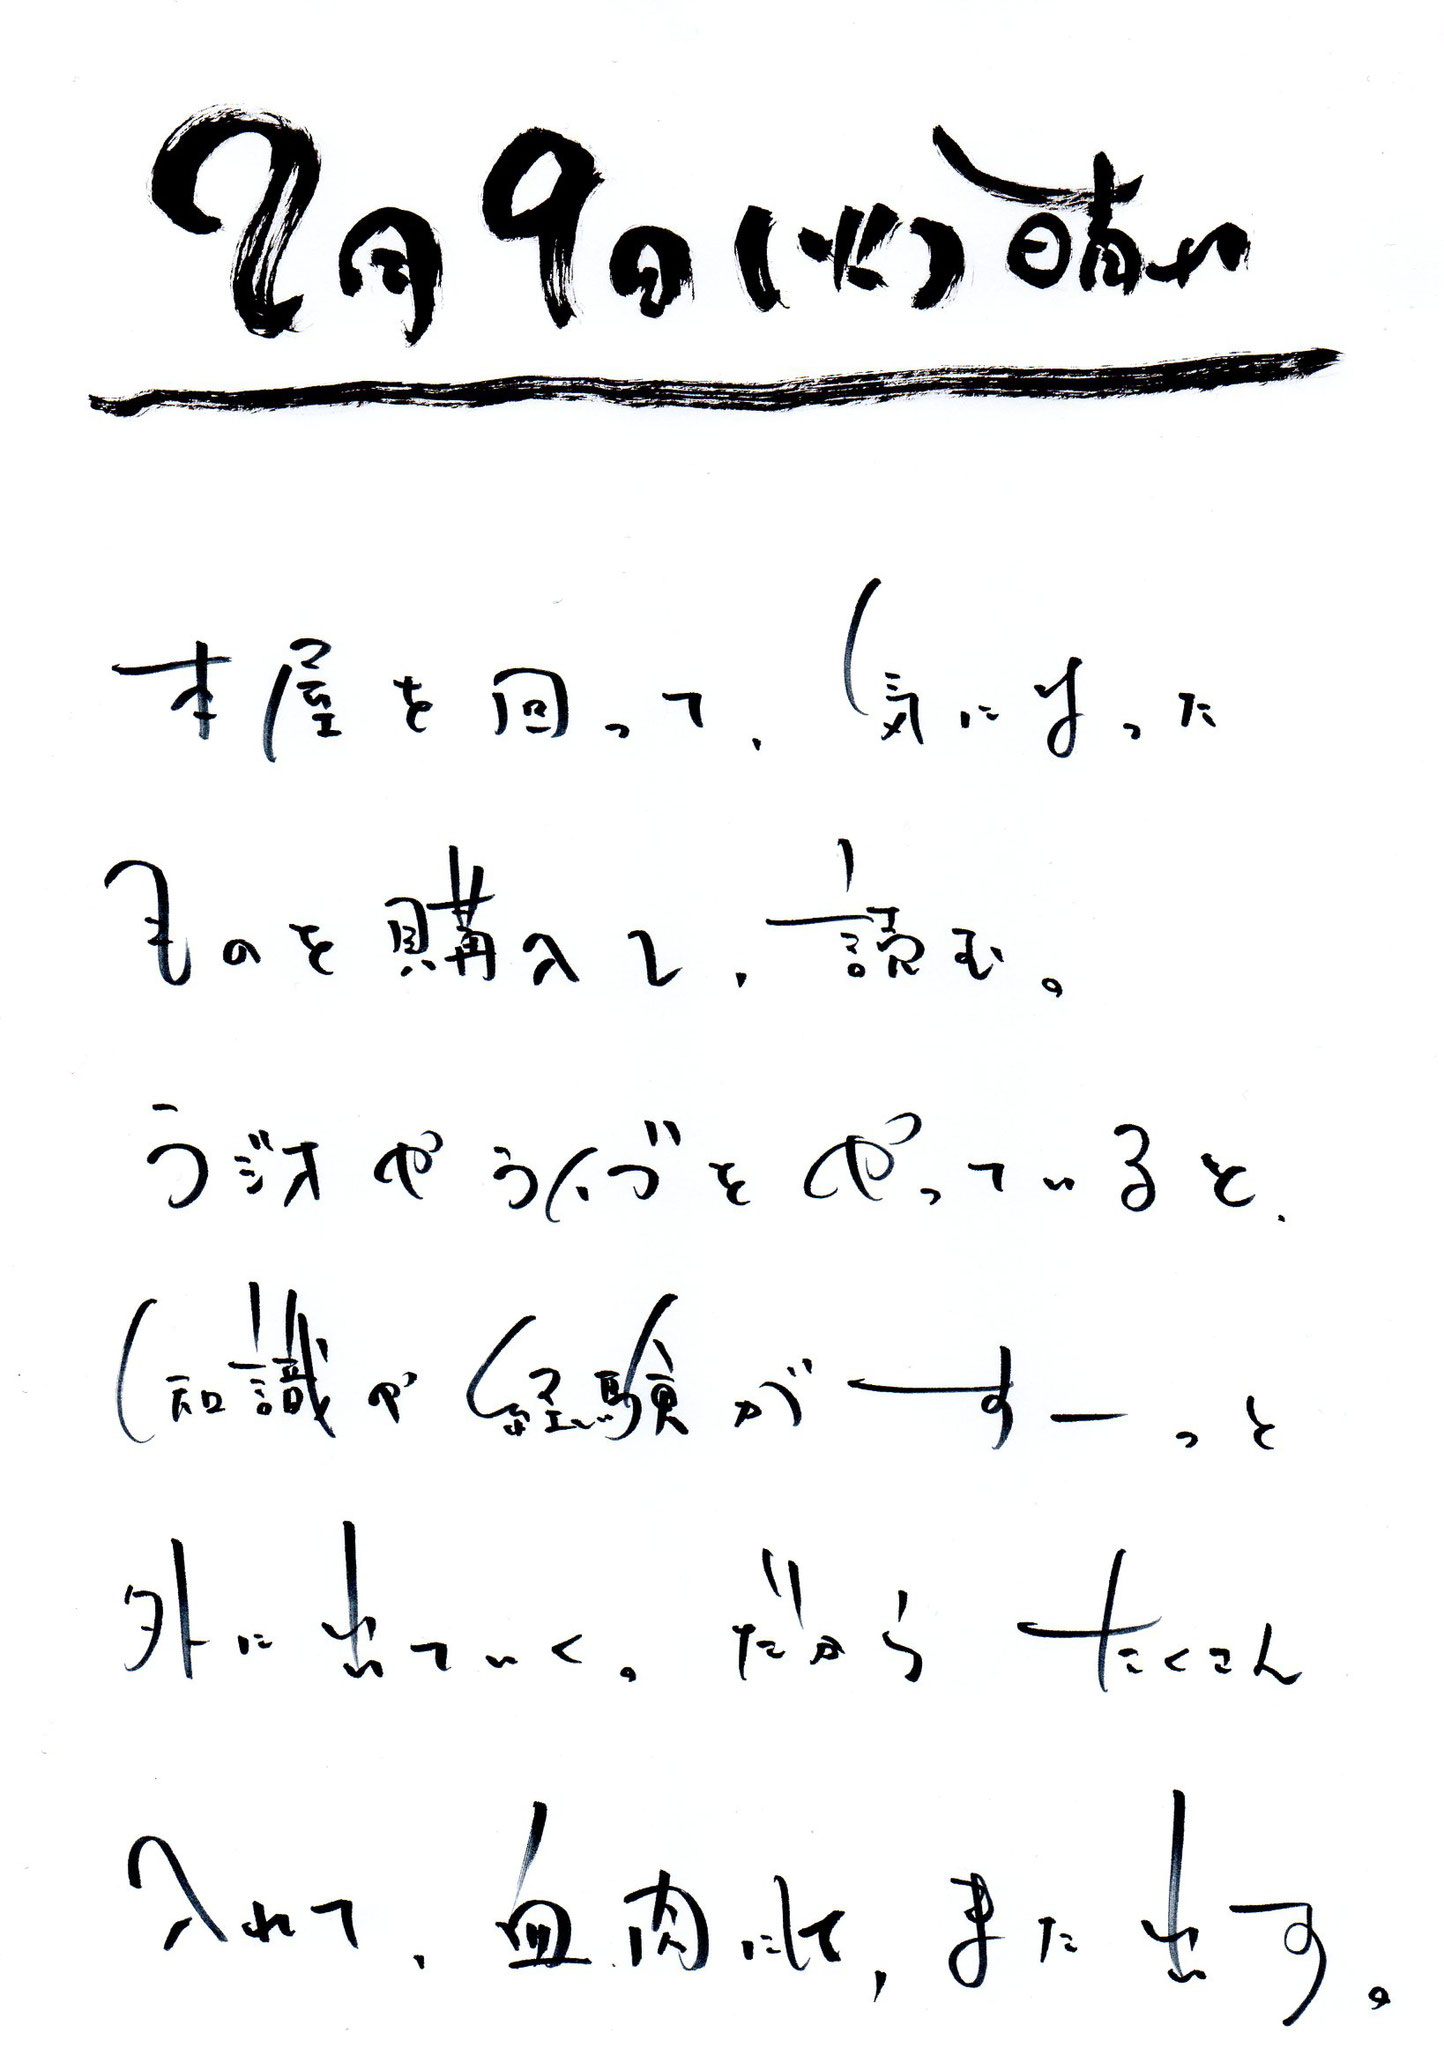 2月9日(火)晴れ
本屋を回って、気になった
ものを購入し、読む。
ラジオやライブをやっていると、
知識や経験がすーっと
外に出ていく。だからたくさん
入れて、血肉にして、また出す。